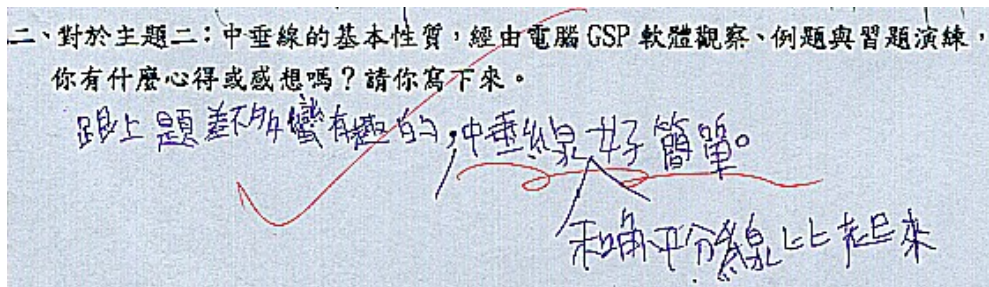 二、對於主題二：中垂線的基本性質，經由電腦 GSP 軟體觀察、例題與習題演練，
你有什麼心得或感想嗎？請你寫下來。
跟上題差不多蠻有趣的，中垂線好簡單。
和角平分線比起來